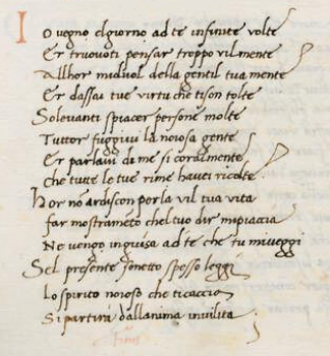 Io vegno elgiorno ad te infinite volte
Et truovoti pensar troppo vilmente
Allhor miduol della gentil tua mente
Et dassai tue virtu che tison tolte
Solevanti spiacer persone molte
Tuttor fuggivi la noiosa gente
Et parlavi di me si coralmente
Che tutte le tue rime havei ricolte
Hor nō ardiscon por la vil tua vita
far mostrameto chel tuo dir mipiaccia
Ne vengo inguisa ad te che tu miveggi
Sel presente sonetto spesso leggi
Lo spirito noioso che ticaccia
Si partira dallanima invilita